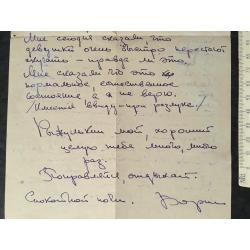 Мне сегодня сказали что
девушки очень быстро перестают
скучать – правда ли это.
Мне сказали что это
нормальное, естественное
состояние а я не верю.
/Имеется ввиду – при разлуке./
мой, хороший
целую тебя много, много
раз.
Поправляйся, отдыхай.
Спокойной ночи. Борис